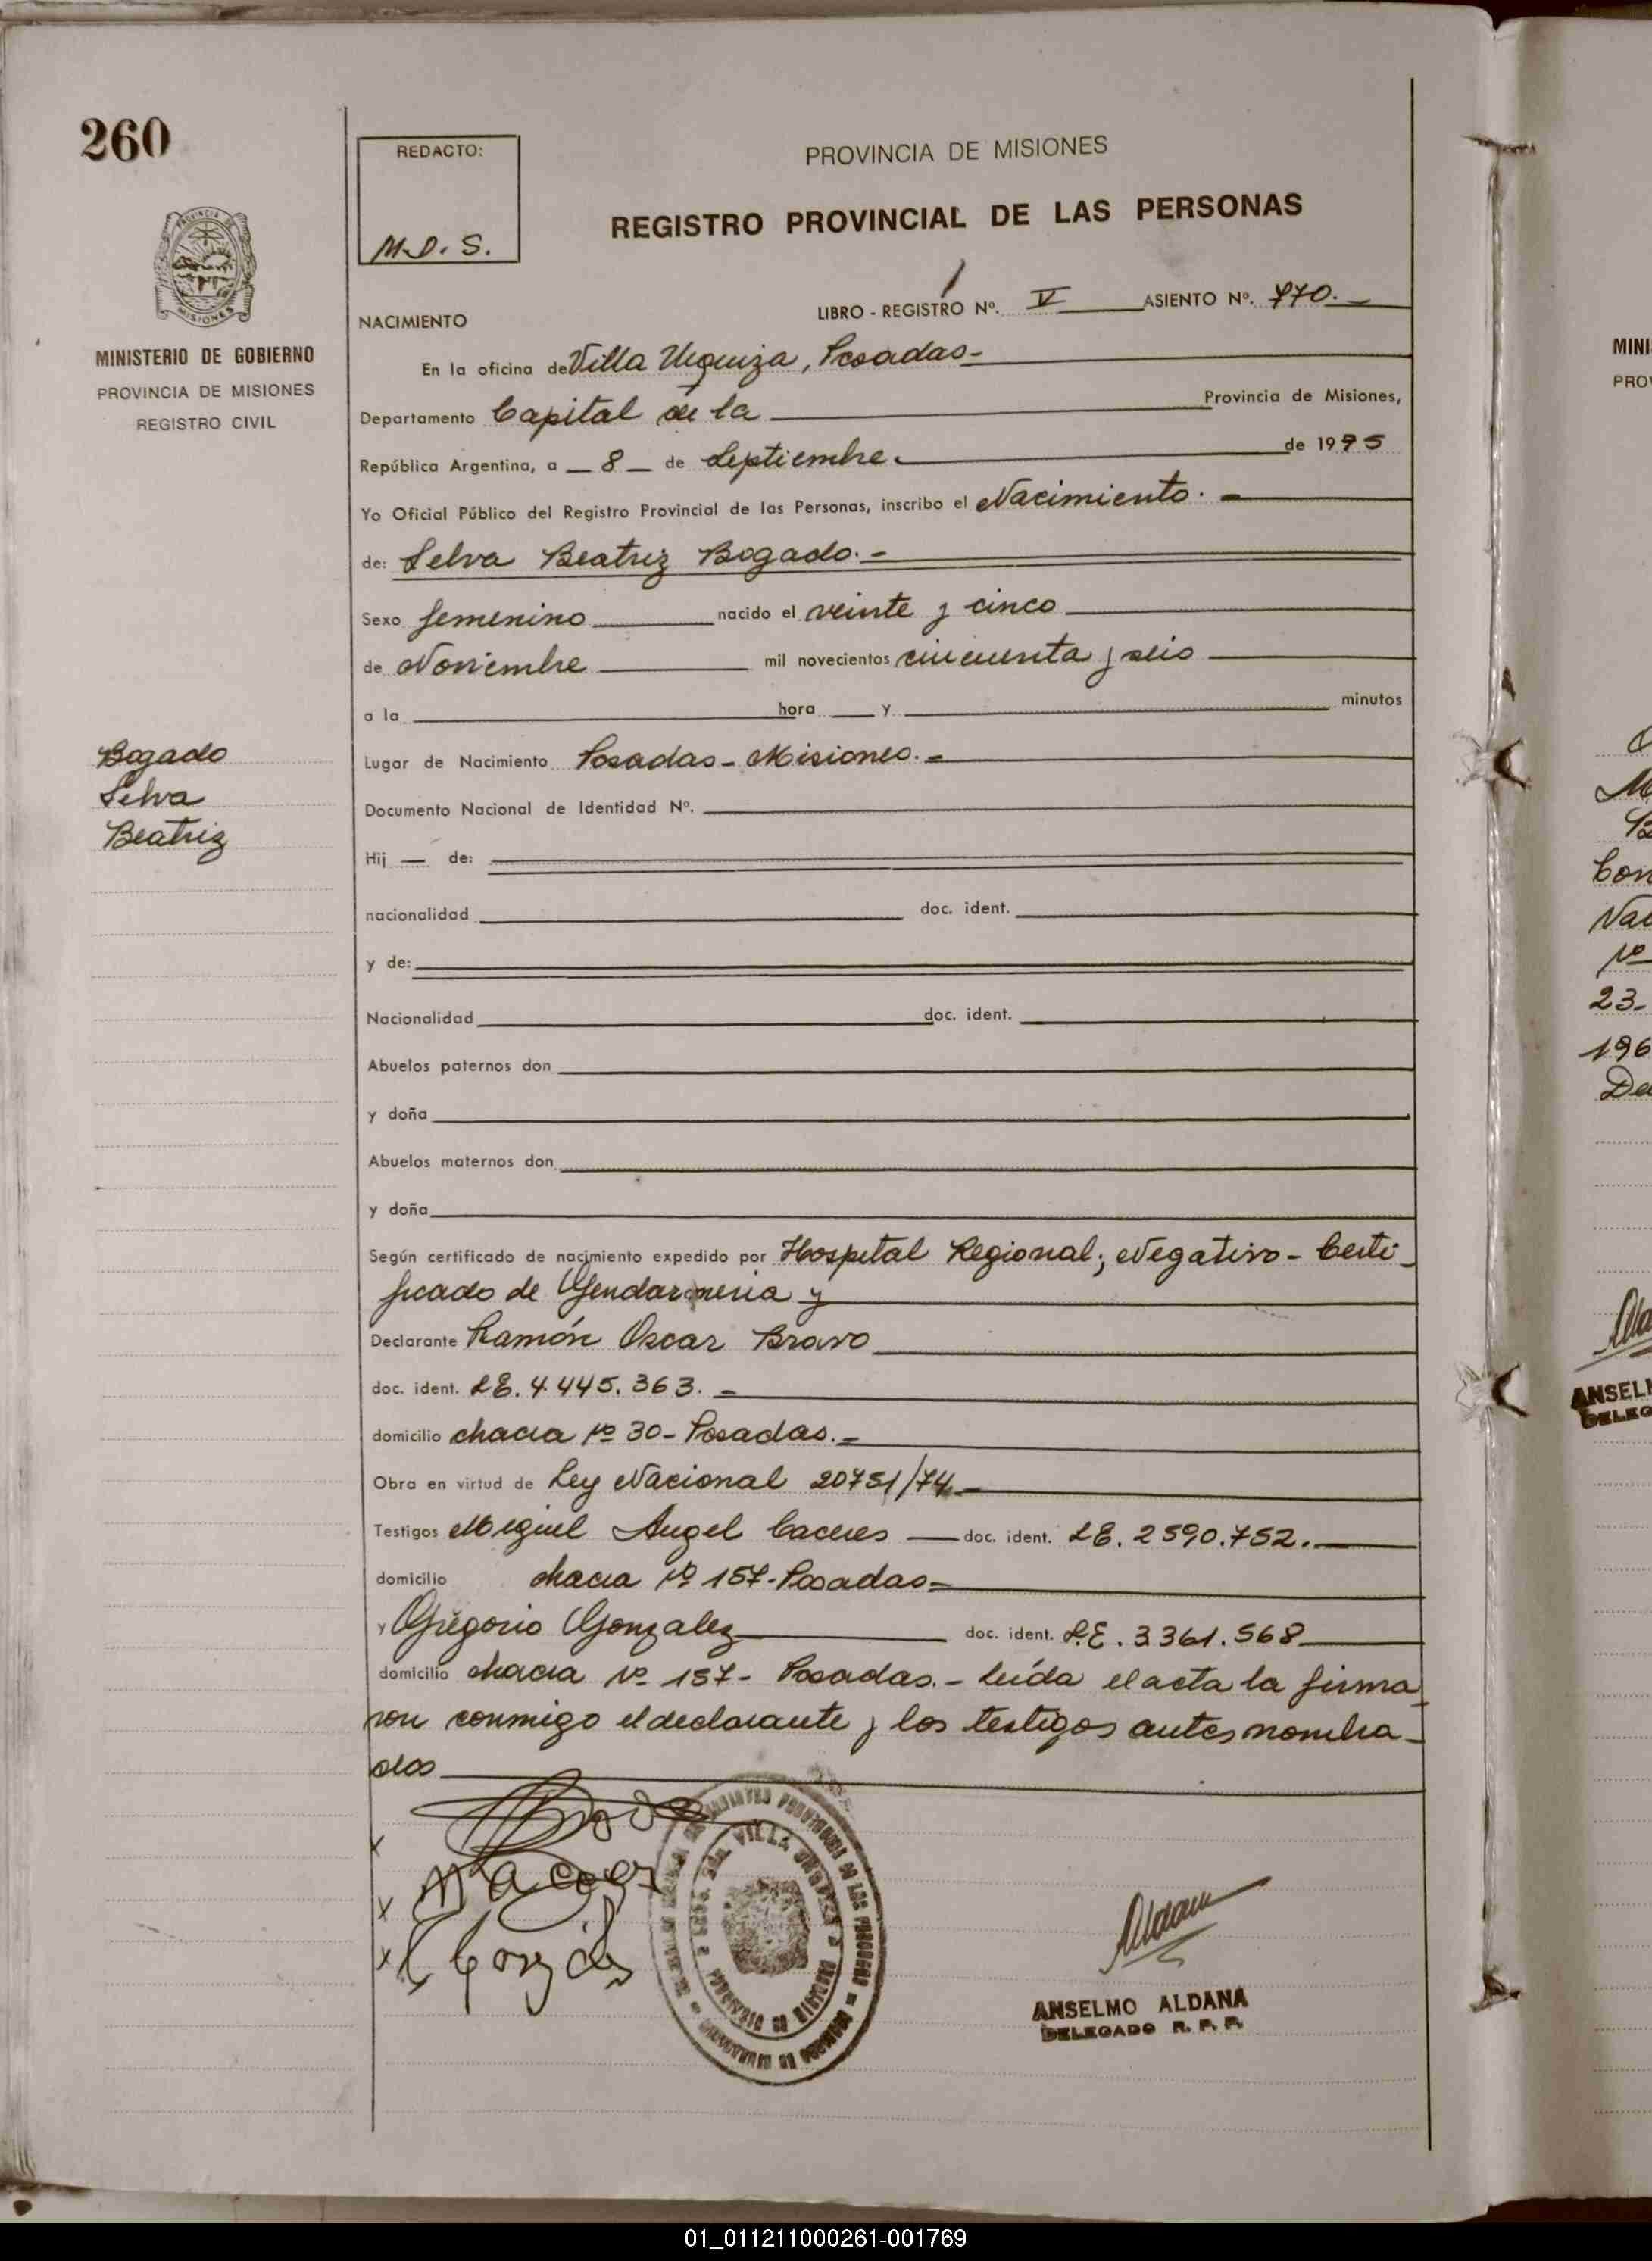 260
REDACTO:
M.D.S.
PROVINCIA DE MISIONES
REGISTRO PROVINCIAL DE LAS PERSONAS
MINISTERIO DE GOBIERNO
PROVINCIA DE MISIONES
REGISTRO CIVIL
NACIMIENTO
LIBRO - REGISTRO Nº. V ASIENTO Nº. 770.
En la oficina de Villa Urquiza, Posadas-
Departamento Capital de la Provincia de Misiones,
República Argentina, a 8 de Septiembre. de 1975
Yo Oficial Público del Registro Provincial de las Personas, inscribo el Nacimiento. -
de: Selva Beatriz Bogado. -
Sexo femenino nacido el veinte y cinco
de Noviembre mil novecientos cincuenta y seis
a la hora y minutos
Bogado
Selva
Beatriz
Lugar de Nacimiento Posadas - Misiones. -
Documento Nacional de Identidad Nº.
Hij — de:
nacionalidad doc. ident.
y de:
Nacionalidad doc. ident.
Abuelos paternos don
y doña
Abuelos maternos don
y doña
Según certificado de nacimiento expedido por Hospital Regional; Negativo - Certi-
ficado de Gendarmeria y
Declarante Ramón Oscar Bravo
doc. ident. LE. 4.445.363. -
domicilio chacra Nº 30 - Posadas. -
Obra en virtud de Ley Nacional 20751/74. -
Testigos Miguel Angel Caceres — doc. ident. LE. 2590.752.
domicilio chacra Nº 157 - Posadas -
y Gregorio Gonzalez doc. ident. L.E. 3361.568
domicilio chacra Nº 157 - Posadas. - Leída el acta la firma-
ron conmigo el declarante y los testigos antes nombra-
dos
VILLA URQUIZA
Aldana
ANSELMO ALDANA
DELEGADO R. P. P.
MINI
PRO
23-
196
ANSEL
DELEG
01_011211000261-001769